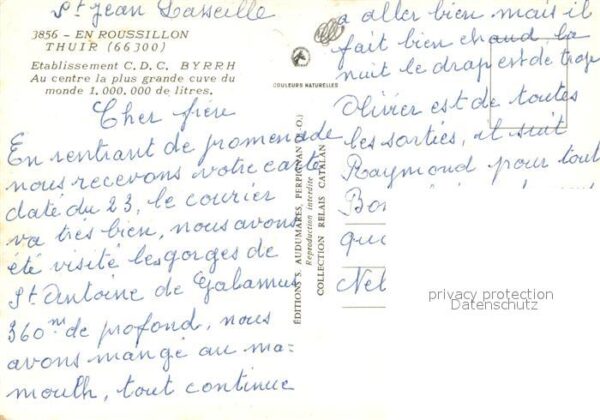 St Jean Lasseille
3856 - EN ROUSSILLON
THUIR (66300)
Etablissement C.D.C. BYRRH
Au centre la plus grande cuve du
monde 1.000.000 de litres.
Cher frère
En rentrant de promenade
nous recevons votre carte
daté du 23, le courier
va très bien, nous avons
été visité les gorges de
St Antoine de Galamus
360m de profond, nous
avons mangé au ma-
mouth, tout continue
COULEURS NATURELLES
ÉDITIONS S. AUDUMARES, PERPIGNAN (P.-O.)
Reproduction interdite
COLLECTION RELAIS CATALAN
a aller bien mais il
fait bien chaud la
nuit le drap est de trop
Olivier est de toutes
les sorties, il suit
Raymond pour tout
privacy protection
Datenschutz